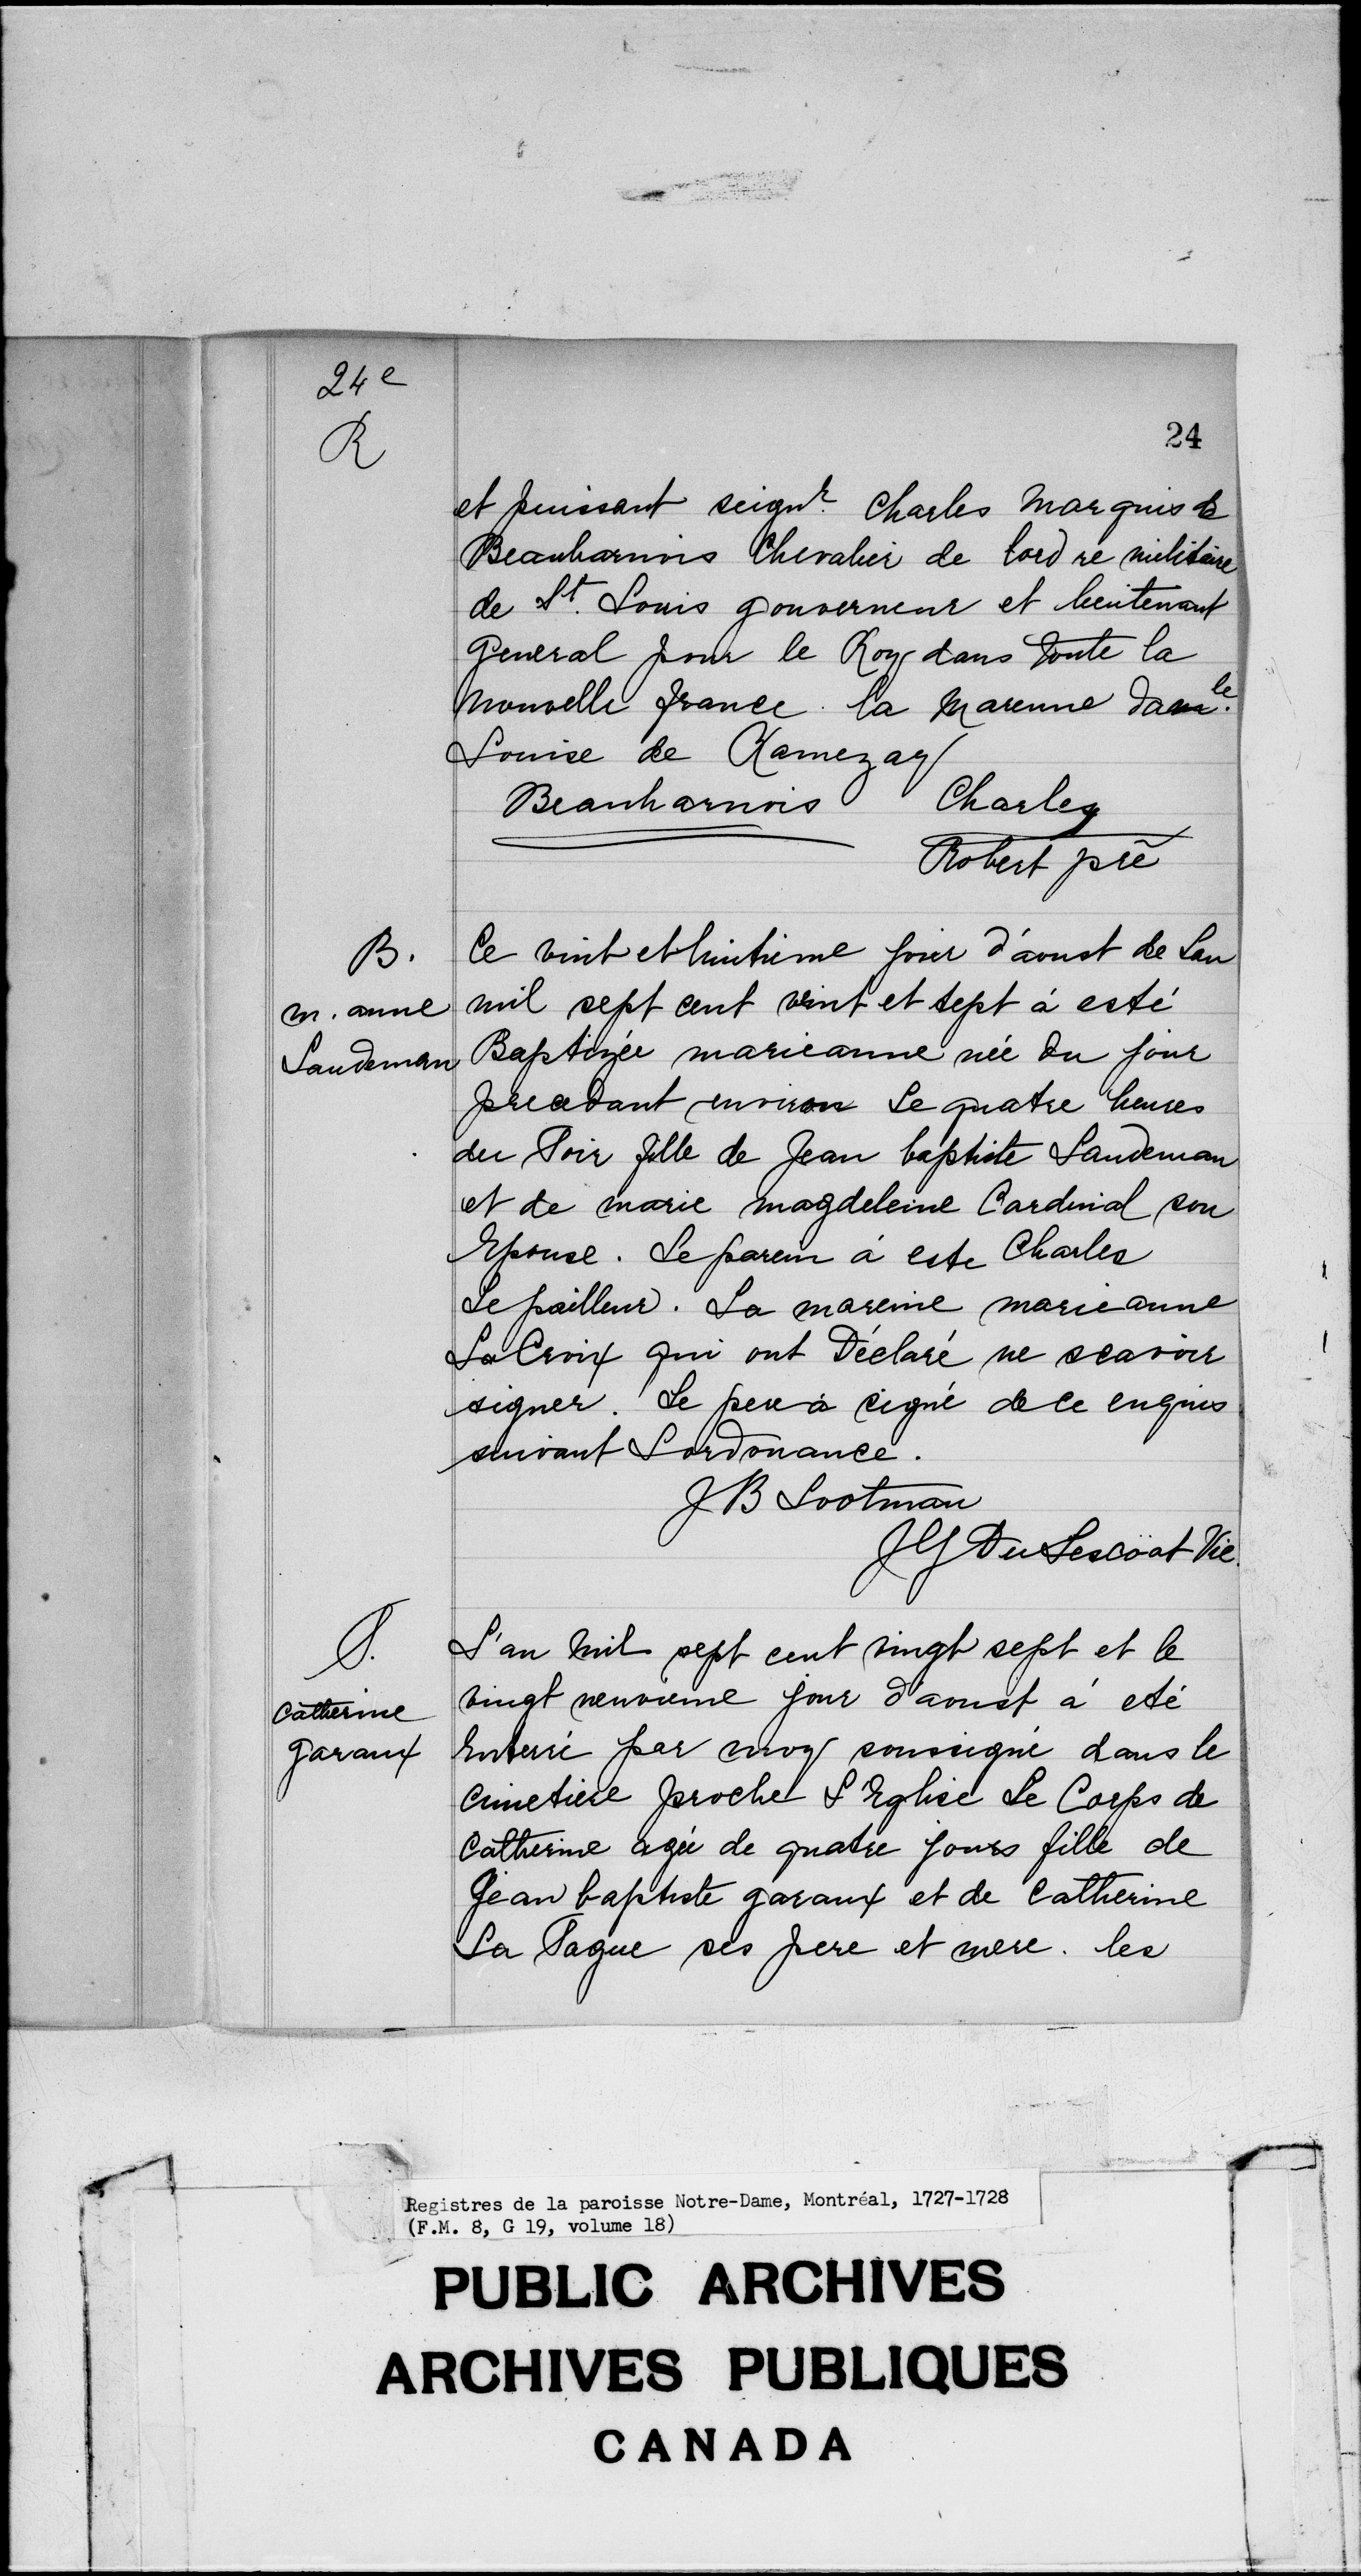 24e
R
24
et puissant seignr. Charles Marquis de
Beauharnois Chevalier de lord re militaire
de St. Louis gouverneur et lieutenant
General pour le Roy dans toute la
Nouvelle france. la Marenne damle.
Louise de Ramezay
Beauharnois Charles
Robert prê
B.
m. anne
Laudeman
Ce vint et huitieme jour d'aoust de Lan
mil sept cent vint et sept á esté
Baptizée marieanne née du jour
precedant environ Le quatre heures
du Soir fille de Jean baptiste Laudeman
et de marie magdeleine Cardinal son
Epouse. Le parein á este Charles
Le pailleur. La mareine marieanne
La Croix qui ont Déclaré ne scavoir
signer. Le pere a signé de ce enquis
suivant Lordonance.
J B Lootman
J G Du Lescöat Vic.
S.
Catherine
garaux
L'an Mil sept cent vingt sept et le
vingt neuvieme jour d'aoust á eté
Enterré par moy soussigné dans le
cimetiere proche L'Eglise Le Corps de
Catherine agée de quatre jours fille de
Jean baptiste garaux et de Catherine
La Tague ses pere et mere. les
Registres de la paroisse Notre-Dame, Montréal, 1727-1728
(F.M. 8, G 19, volume 18)
PUBLIC ARCHIVES
ARCHIVES PUBLIQUES
CANADA